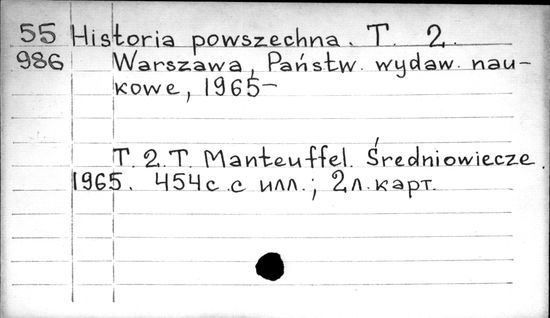 55 Historia powszechna. T. 2.
986 Warszawa, Państw. wydaw. nau-
kowe, 1965-
T. 2. T. Manteuffel. Średniowiecze.
1965. 454с. с илл.; 2л. карт.